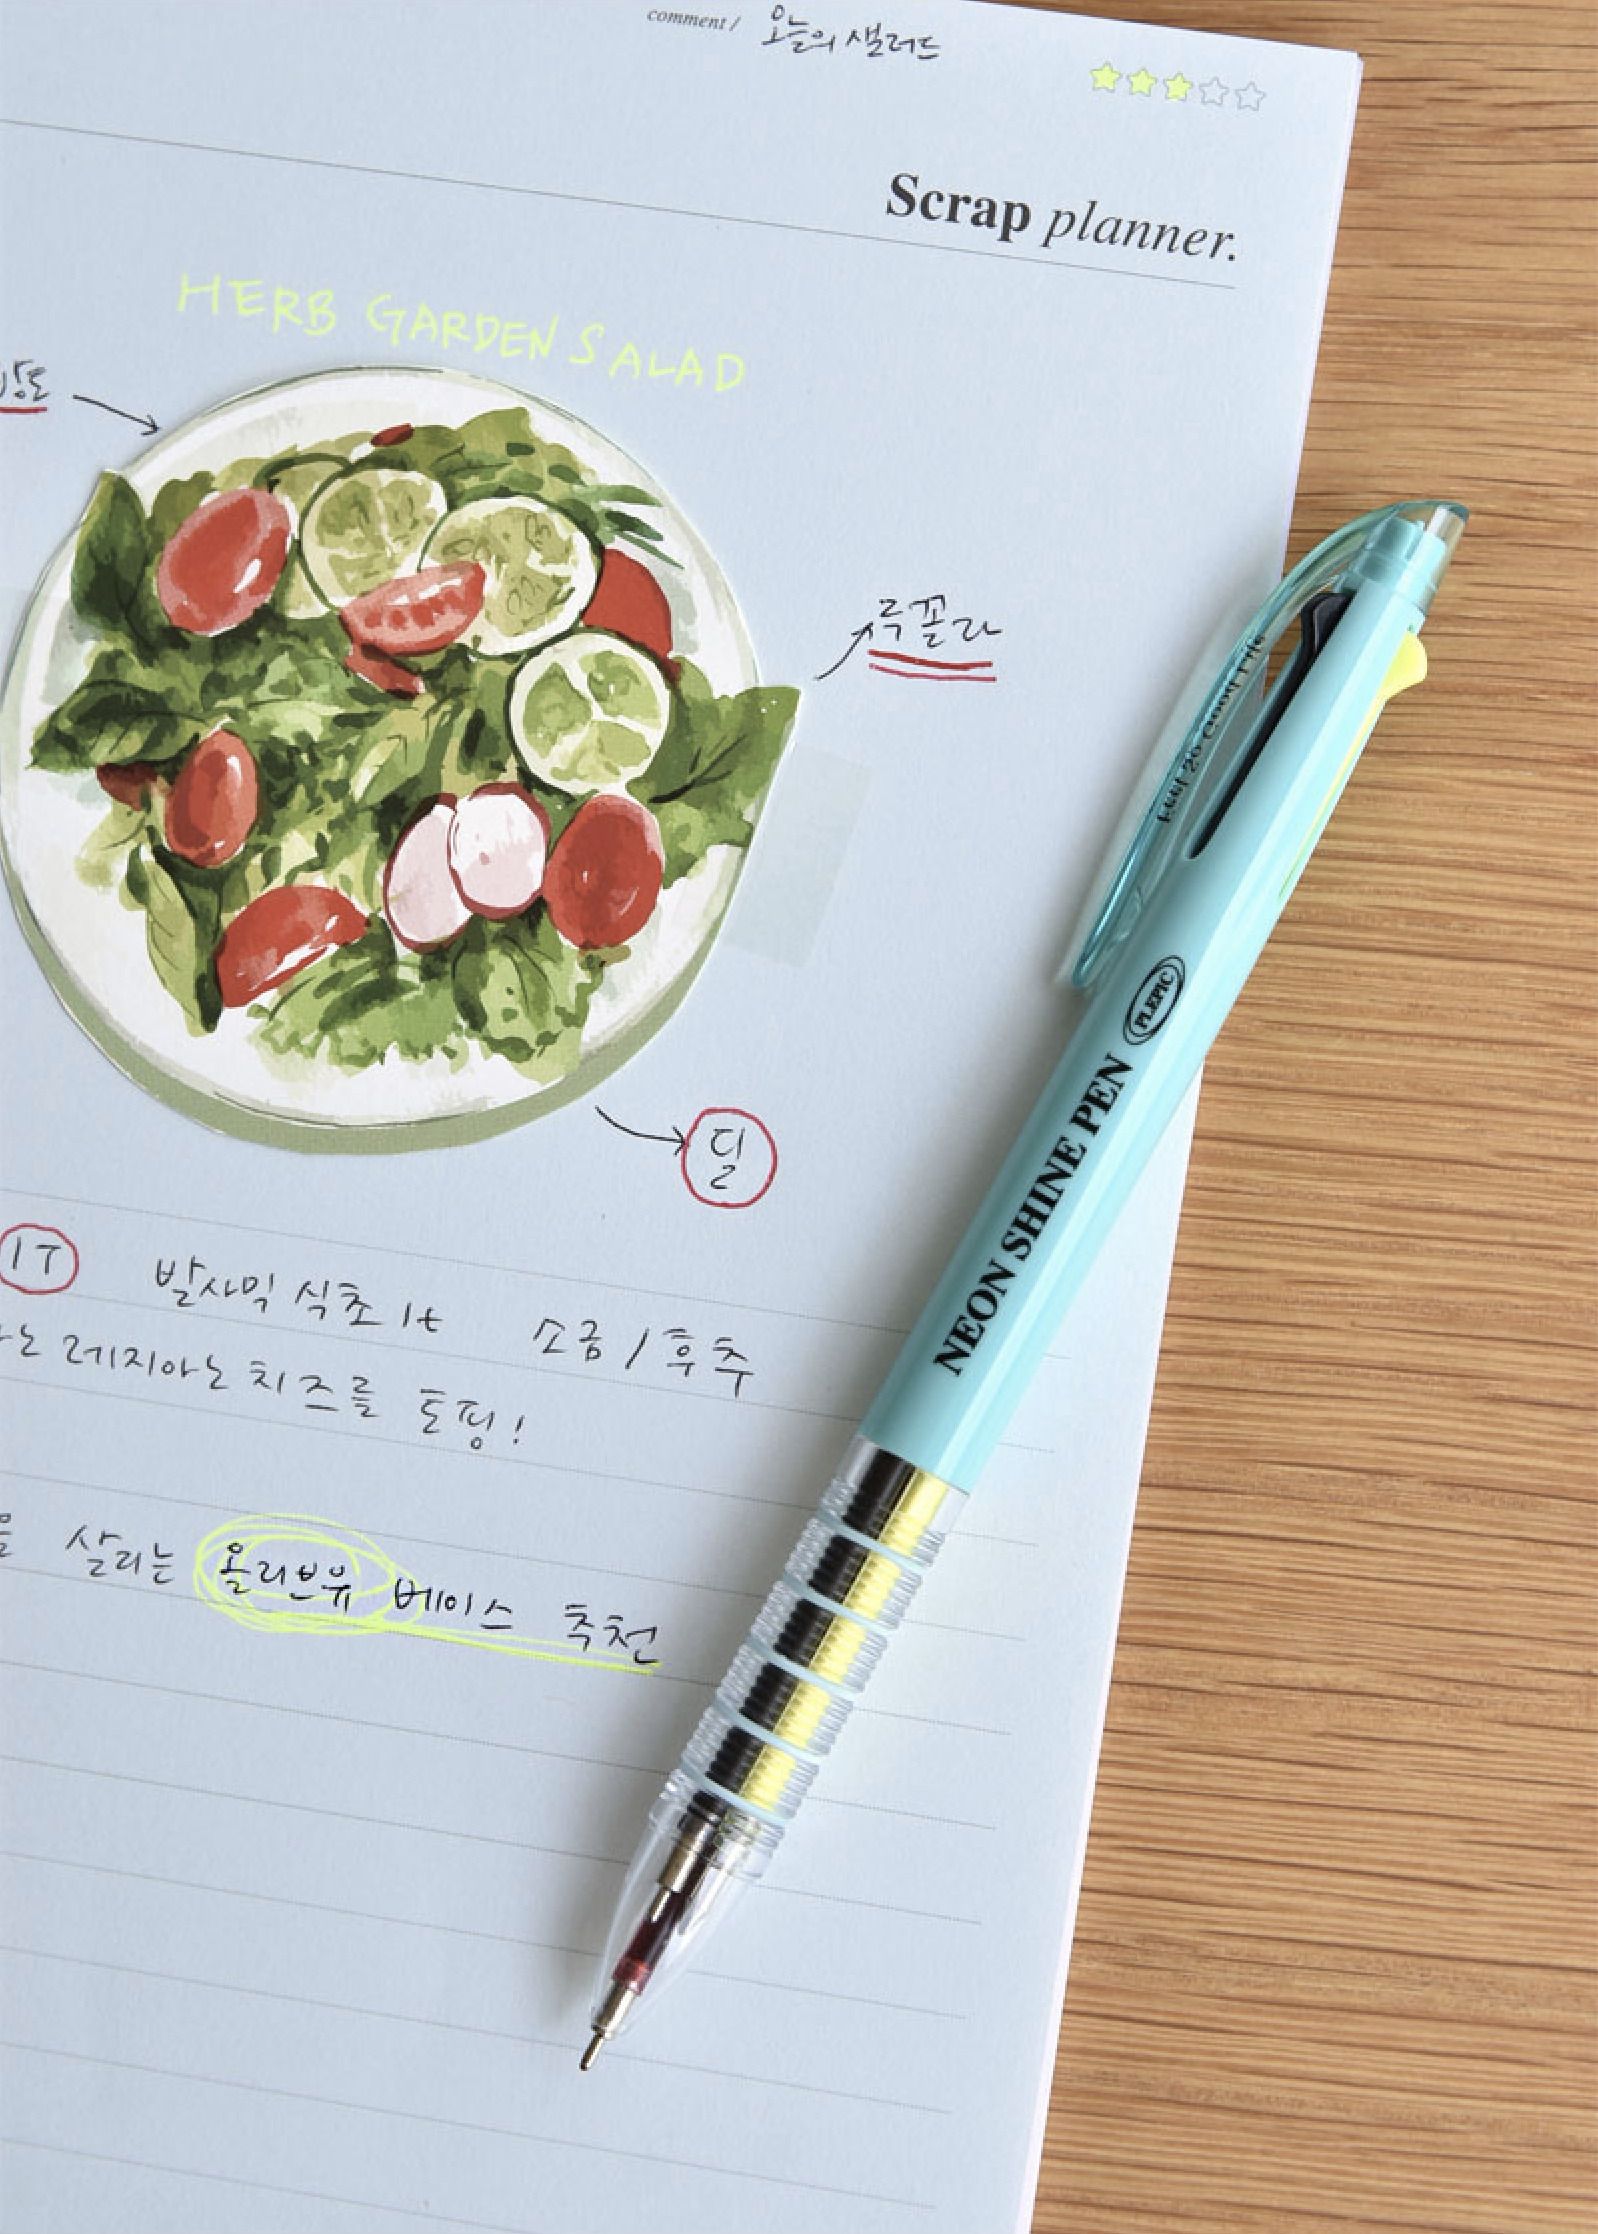 comment / 오늘의 샐러드
Scrap planner.
HERB GARDEN SALAD
루꼴라
딜
1T 발사믹 식초 1t 소금 / 후추
레지아노 치즈를 토핑!
살리는 올리브유 베이스 추천
NEON SHINE PEN PLEPIC